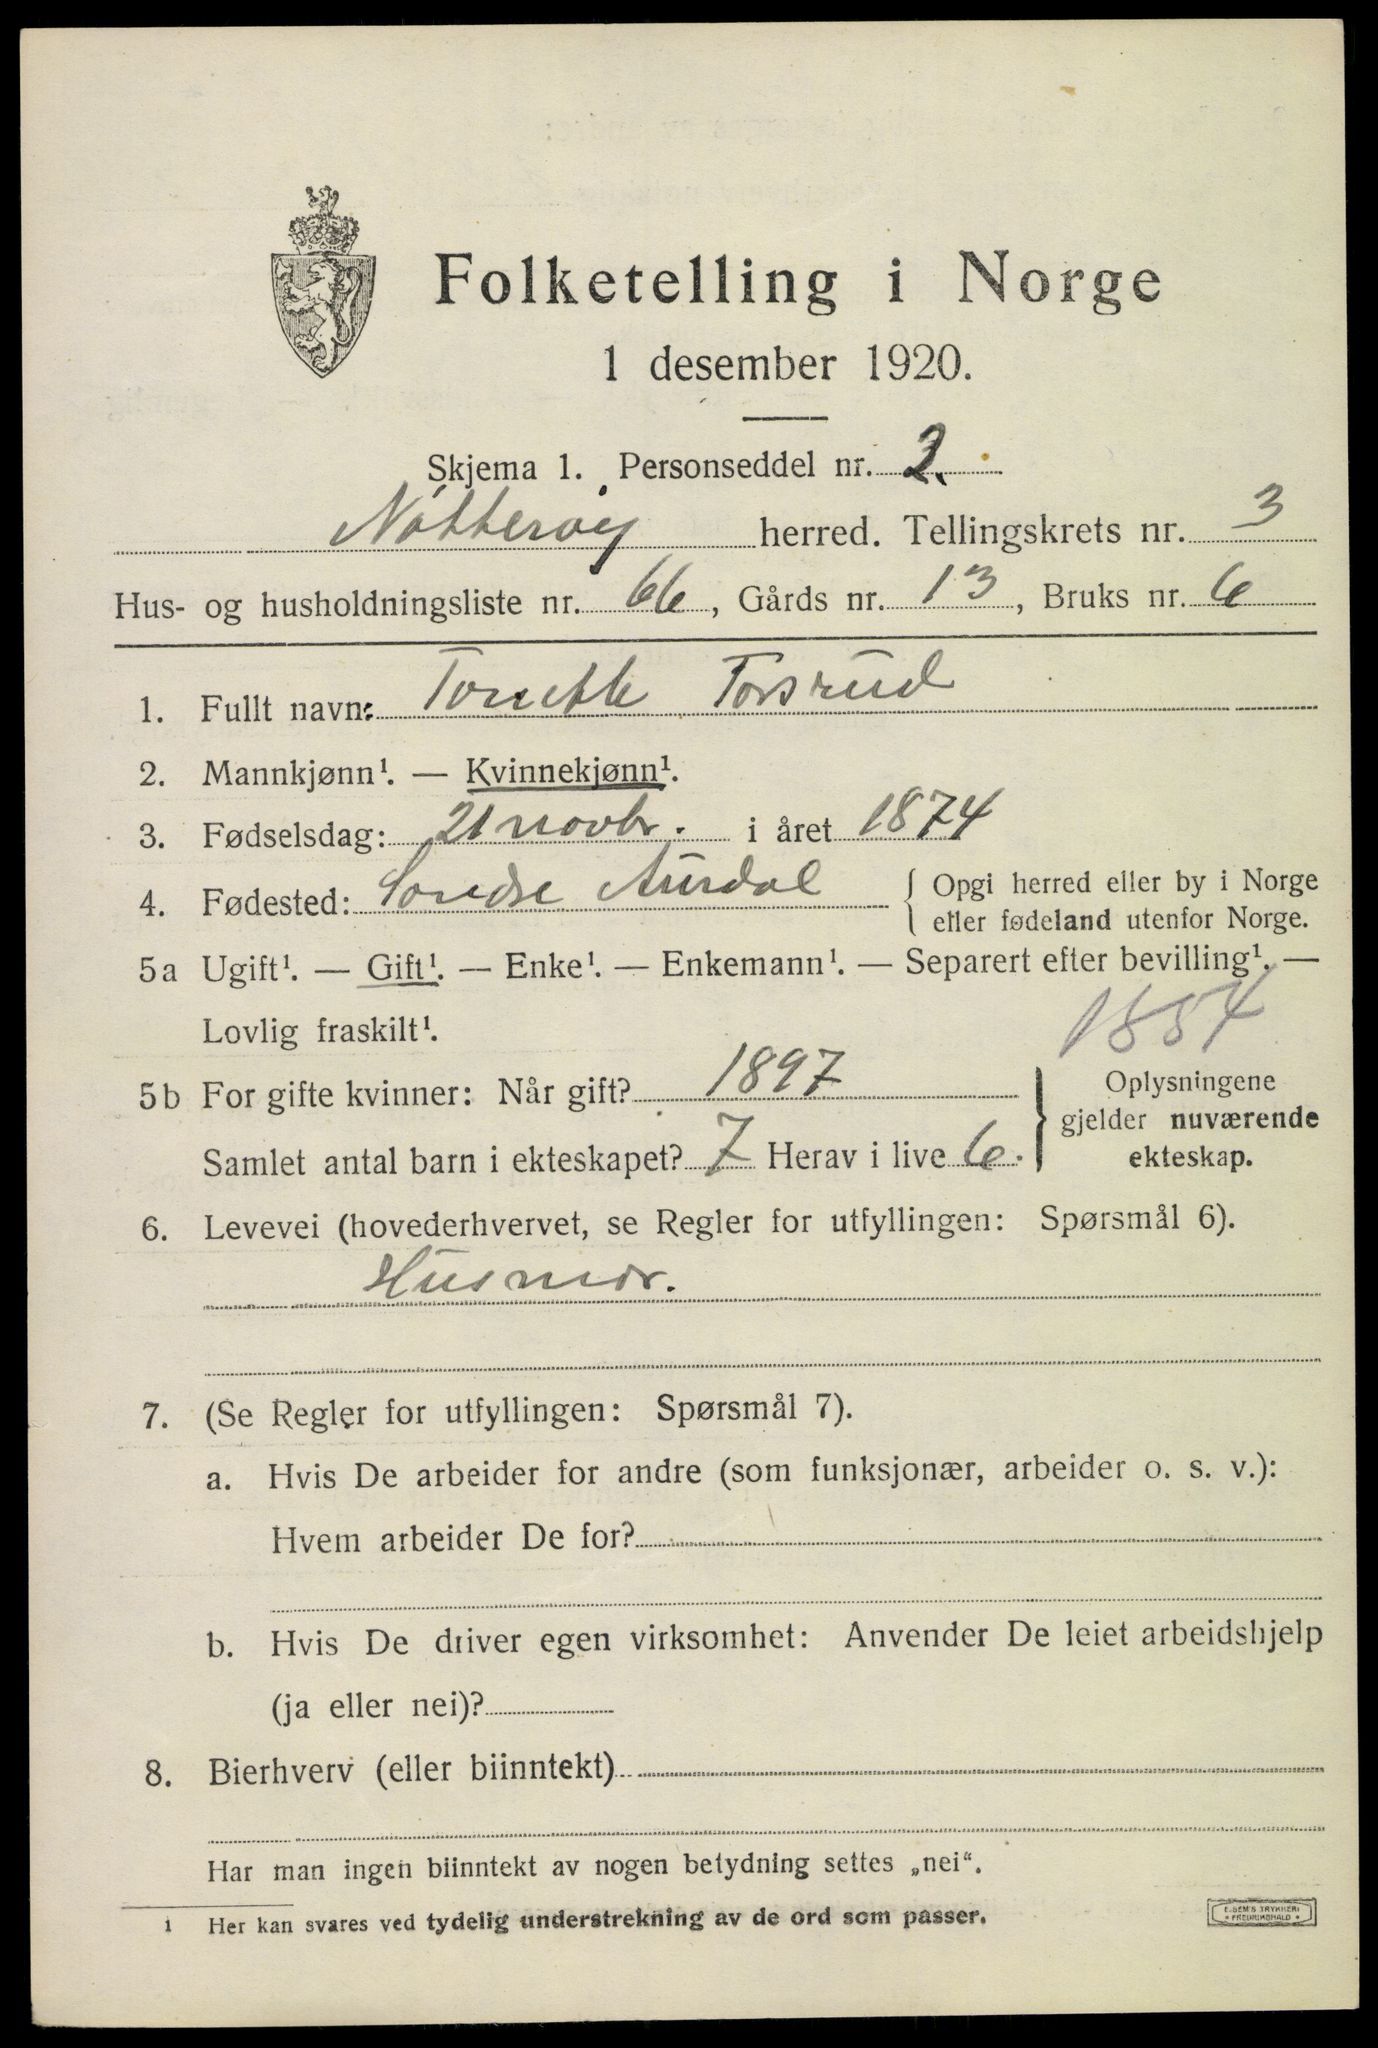 Folketelling i Norge
1 desember 1920.
Skjema 1. Personseddel nr. 2.
Nøtterøy herred. Tellingskrets nr. 3
Hus- og husholdningsliste nr. 66, Gårds nr. 13, Bruks nr. 6
1. Fullt navn: Torsrud
2. Mannkjønn¹. — Kvinnekjønn¹.
3. Fødselsdag: 21 novbr. i året 1874
4. Fødested: Søndre Aurdal { Opgi herred eller by i Norge
eller fødeland utenfor Norge.
5a Ugift¹. — Gift¹. — Enke¹. — Enkemann¹. — Separert efter bevilling¹. —
Lovlig fraskilt¹.
1884
5b For gifte kvinner: Når gift? 1897
Samlet antal barn i ekteskapet? 7 Herav i live 6.
} Oplysningene
gjelder nuværende
ekteskap.
6. Levevei (hovederhvervet, se Regler for utfyllingen: Spørsmål 6).
Husmor.
7. (Se Regler for utfyllingen: Spørsmål 7).
a. Hvis De arbeider for andre (som funksjonær, arbeider o. s. v.):
Hvem arbeider De for?
b. Hvis De driver egen virksomhet: Anvender De leiet arbeidshjelp
(ja eller nei)?
8. Bierhverv (eller biinntekt)
Har man ingen biinntekt av nogen betydning settes „nei“.
1 Her kan svares ved tydelig understrekning av de ord som passer.
E. SEM'S TRYKKERI
FREDRIKSHALD